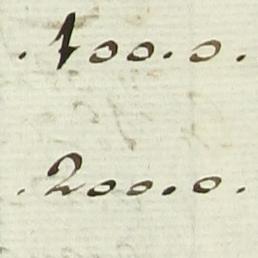 .100.0.
.200.0.